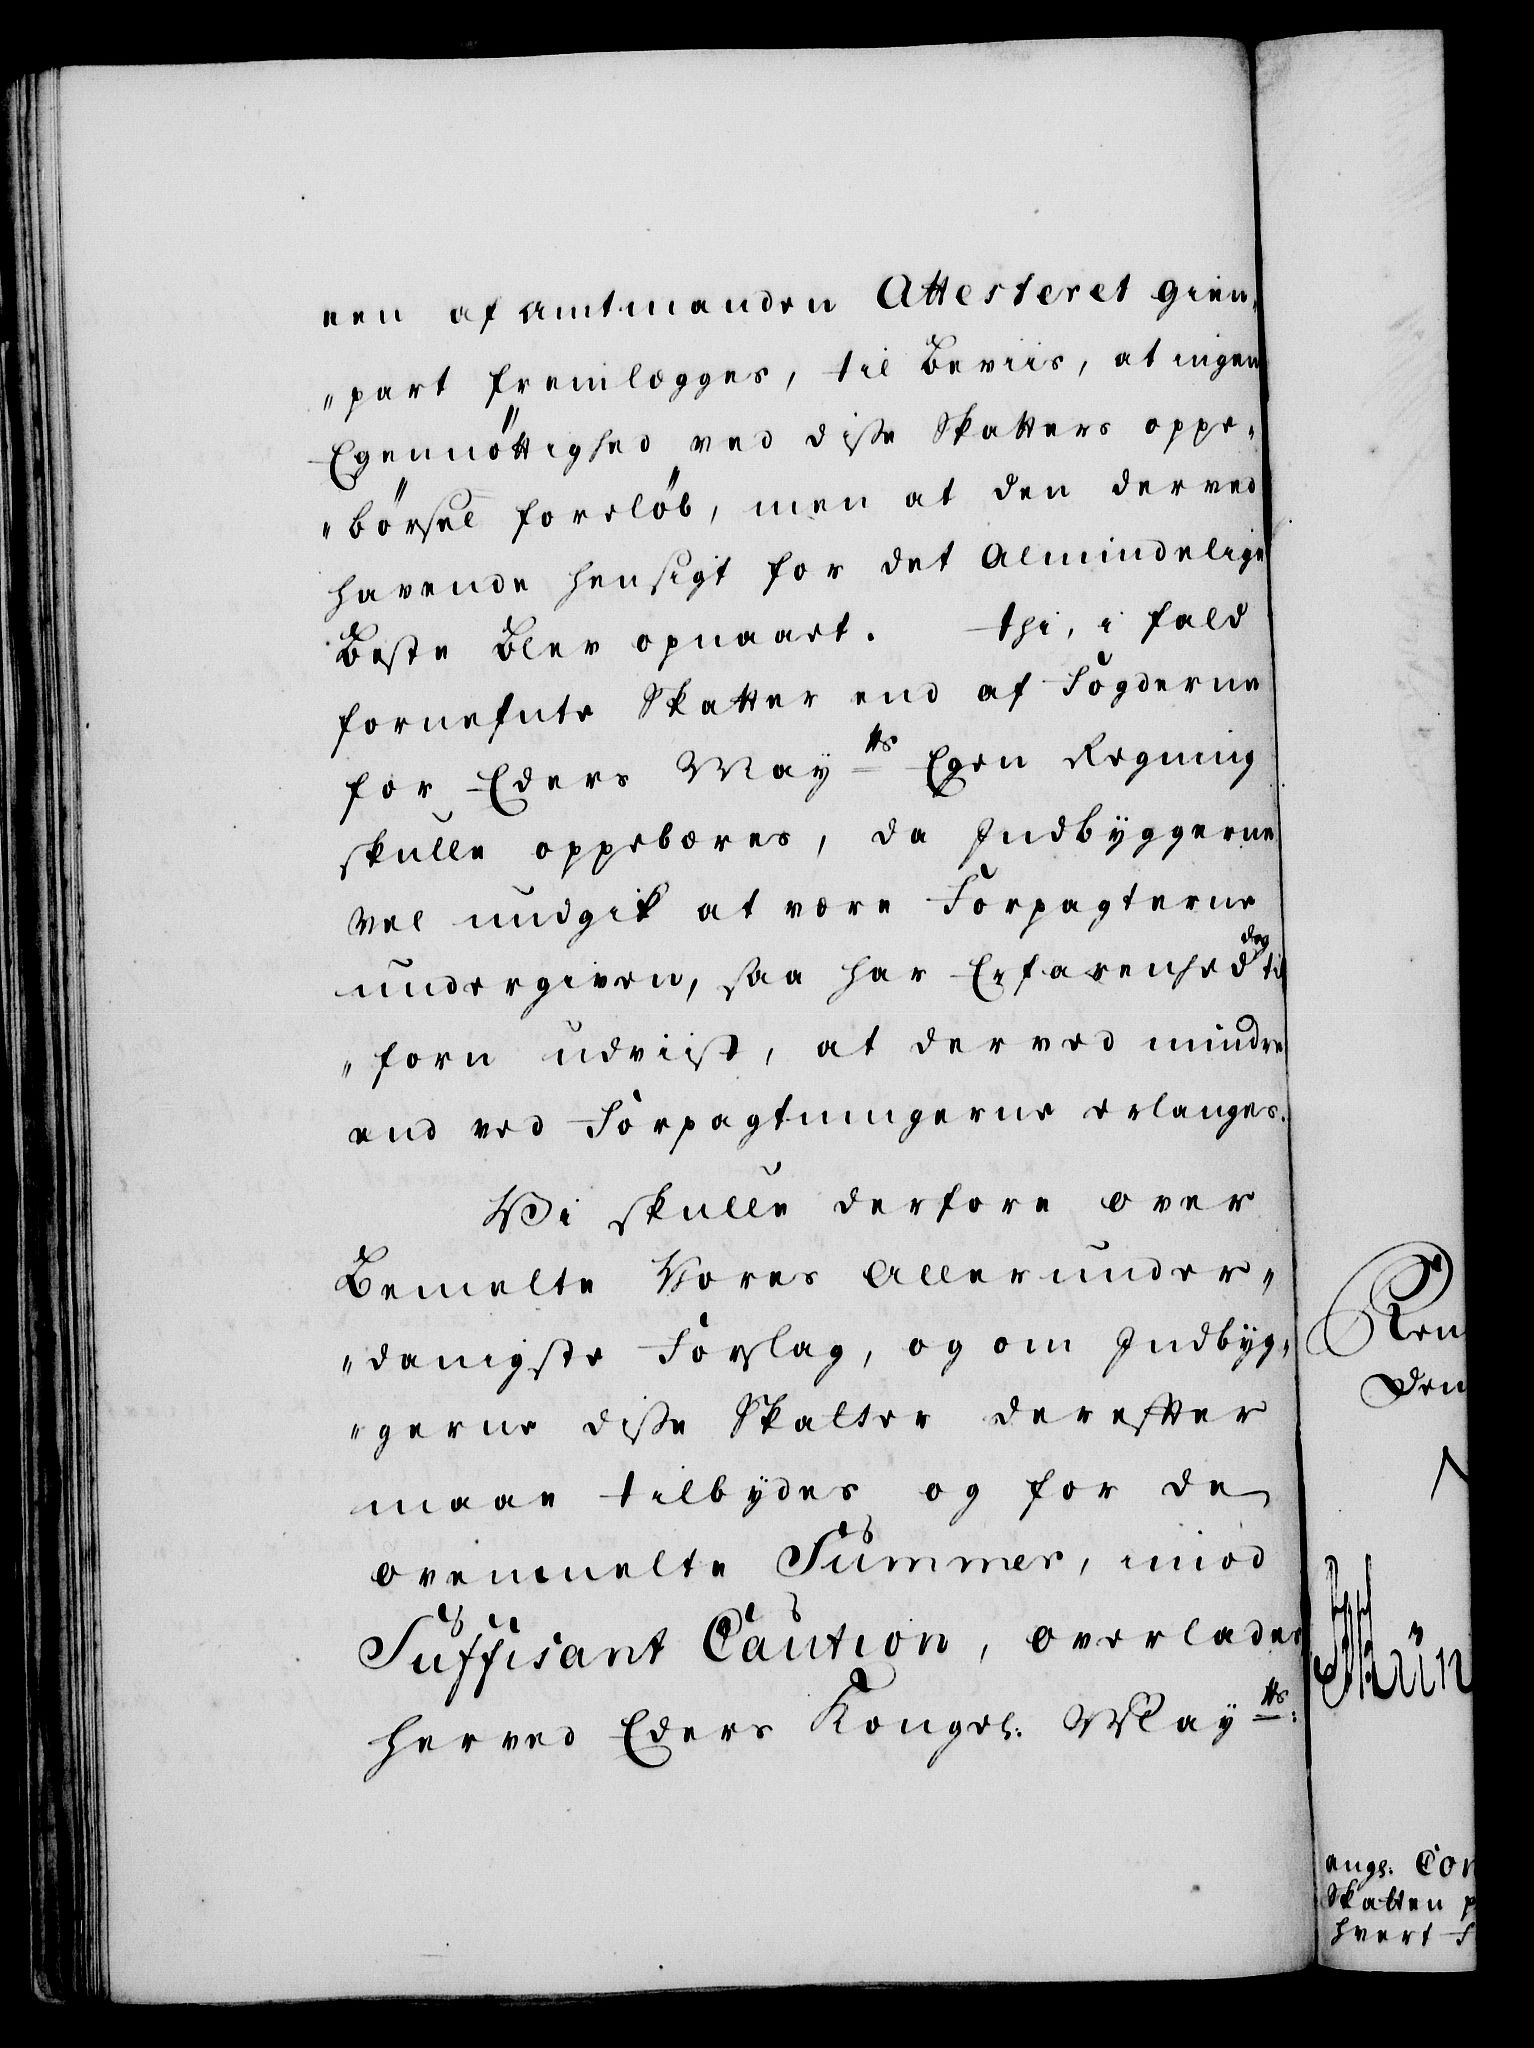 een af Amtmanden Attesteret Gien-
„part fremlægges, til Beviis, at ingen
Egennöttighed ved disse Skatters oppe-
„börsel foreløb, men at den derved
havende hensigt for det Almindelige
Beste Blev opnaaet. Thi, i fald
fornefnte Skatter end af Fogderne
for Eders Mayts Egen Regning
skulle oppebæres, da Indbyggerne
vel undgik at være Forpagterne
undergiven, saa har Erfarenhed dog til
„forn udviist, at derved mindre
end ved Forpagtningerne erlanges.
Vi skulle derfore over
Bemelte Vores Allerunder-
„danigste Forslag, og om Indbyg-
„gerne disse Skatter derefter
maae tilbydes og for de
ovenmelte Summer, imod
Suffisant Caution, overlades
herved Eders Kongel. Mayts:
Ren
Den
Mün
engl. Con
Skatten p
hvert F